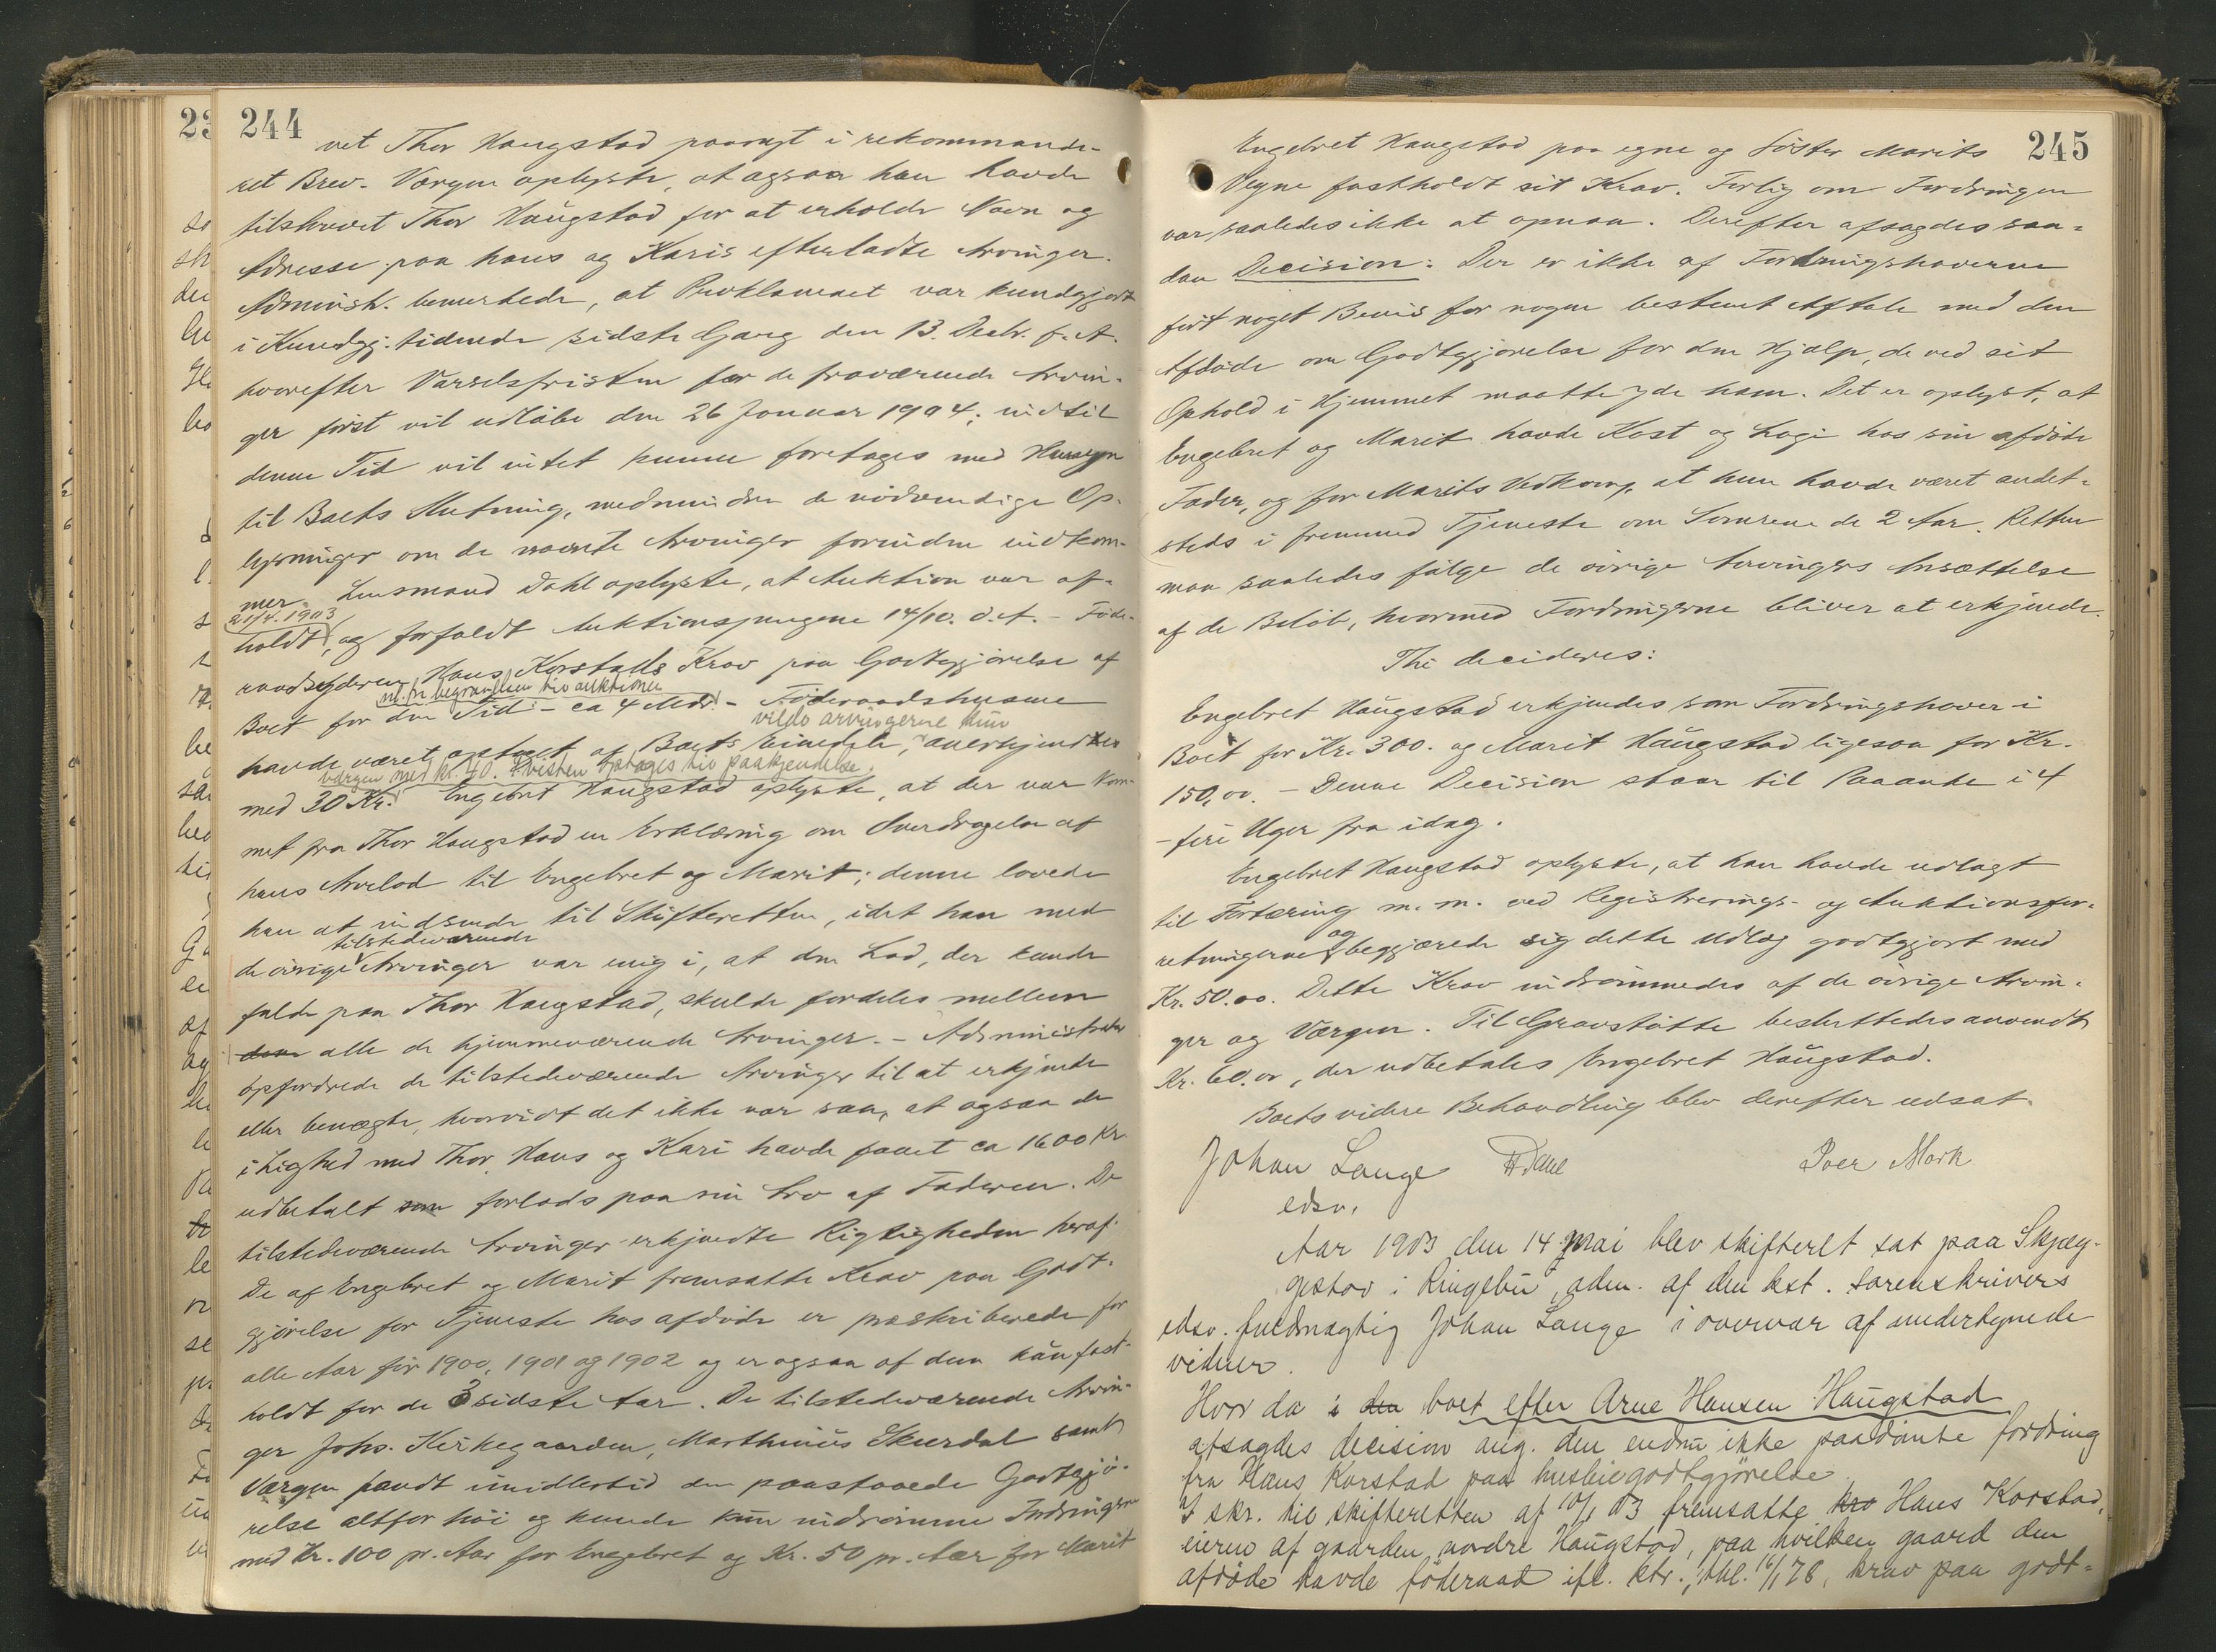 244
vet Thor Haugstad paaragt i rekommande-
ret Brev. Værgen oplyste, at ogsaa han havde
tilskrevet Thor Haugstad for at erholde Navn og
Adresse paa hans og Karis efterladte Arvinger.
Administr. bemerkede, at Proklamaet var kundgjort
i Kundgj. tidende sidste Gang den 13. Decbr. f. A.
hvorefter Varselsfristen for de fraværende Arvin-
ger först vil udløbe den 26 Januar 1904; indtil
denne Tid vil intet kunne foretages med Hensyn
til Boets Slutning, medmindre de nödvendige Op-
lysninger om de nævnte Arvinger forinden indkom-
mer. Lensmand Dahl oplyste, at Auktion var af-
21/4. 1903
holdt, og forfaldt Auktionspengene 14/10. d. A. - Föde-
raadsyderen Hans Korstads Krav paa Godtgjörelse af
nl. fra begravelsen til auktionen
Boet for den Tid - ca 4 Mdr. - Föderaadshusene
vilde arvingerne kun
havde været optaget af Boets Eiendele, anerkjendtes
værgen med kr. 40. Tvisten optages til paakjendelse.
med 30 Kr. Engebret Haugstad oplyste, at der var kom-
met fra Thor Haugstad en Erklæring om Overdragelse af
hans Arvelod til Engebret og Marit; denne lovede
han at indsende til Skifteretten, idet han med
tilstedeværende
de övrige Arvinger var enig i, at den Lod, der kunde
falde paa Thor Haugstad, skulde fordeles mellem
dem alle de hjemmeværende Arvinger. - Administrator
opfordrede de tilstedeværende Arvinger til at erkjende
eller benægte, hvorvidt det ikke var saa, at ogsaa de
i Lighed med Thor, Hans og Kari havde faaet ca 1600 Kr.
udbetalt som forlods paa sin Arv af Faderen. De
tilstedeværende Arvinger erkjendte Rigtigheden heraf.
De af Engebret og Marit fremsatte Krav paa Godt-
gjörelse for Tjeneste hos afdöde er præskriberede for
alle Aar för 1900, 1901 og 1902 og er ogsaa af dem kun fast-
holdt for de 3 sidste Aar. De tilstedeværende Arvin-
ger Johs. Kirkegaarden, Marthinius Ekurdal samt
Værgen fandt imidlertid den paastaaede Godtgjö-
relse altfor höi og kunde kun indrömme Fordringen
med Kr. 100 pr. Aar for Engebret og Kr. 50 pr. Aar for Marit
245
Engebret Haugstad paa egne og Söster Marits
Vegne fastholdt sit Krav. Forlig om Fordringen
var saaledes ikke at opnaa. Derefter afsagdes saa-
dan Decision: Der er ikke af Fordringshaverne
fört noget Bevis for nogen bestemt Aftale med den
Afdöde om Godtgjörelse for den Hjælp, de ved sit
Ophold i Hjemmet maatte yde ham. Det er oplyst, at
Engebret og Marit havde Kost og Logi hos sin afdöde
Fader, og for Marits Vedkom., at hun havde været andet-
steds i fremmed Tjeneste om Somrene de 2 Aar. Retten
maa saaledes fölge de övrige Arvingers Ansættelse
af de Belöb, hvormed Fordringerne bliver at erkjende.
Thi decideres:
Engebret Haugstad erkjendes som Fordringshaver i
Boet for Kr. 300. og Marit Haugstad ligesaa for Kr.
150,00. - Denne Decision staar til Paaanke i 4
- fire Uger fra idag.
Engebret Haugstad oplyste, at han havde udlagt
til Fortæring m. m. ved Registrerings- og Auktionsfor-
og
retningerne begjærede sig dette Udlæg godtgjort med
Kr. 50.00. Dette Krav indrömmedes af de övrige Arvin-
ger og Værgen. Til Gravstötte besluttedes anvendt
Kr. 60.00, der udbetales Engebret Haugstad.
Boets videre Behandling blev derefter udsat.
Johan Lange Dahl Iver Mork
edsv.
Aar 1903 den 14 mai blev skifteret sat paa Skjæg-
gestad i Ringebu, adm. af den kst. sorenskrivers
edsv. fuldmægtig Johan Lange i overvær af undertegnede
vidner.
Hvor da i den boet efter Arne Hansen Haugstad
afsagdes decision ang. den endnu ikke paadömte fordring
fra Hans Korstad paa husleiegodtgjörelse.
I skr. til skifteretten af 10/1 03 fremsatte kra Hans Korstad,
eieren af gaarden nordre Haugstad, paa hvilken gaard den
afdöde havde föderaad ifl. ktr., thl. 16/1 78, krav paa godt-